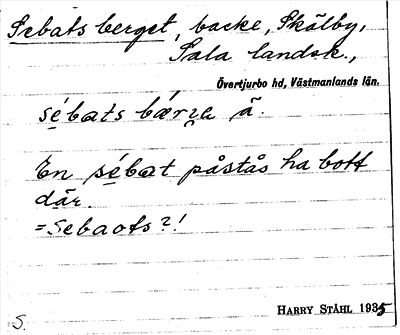 Sebats berget, backe, Skölby,
Sala landsk.,
Övertjurbo hd, Västmanlands län.
sébats bærɣe ã.
En sébat påstås ha bott
där.
= Sebaots?!
S.
HARRY STÅHL 1935